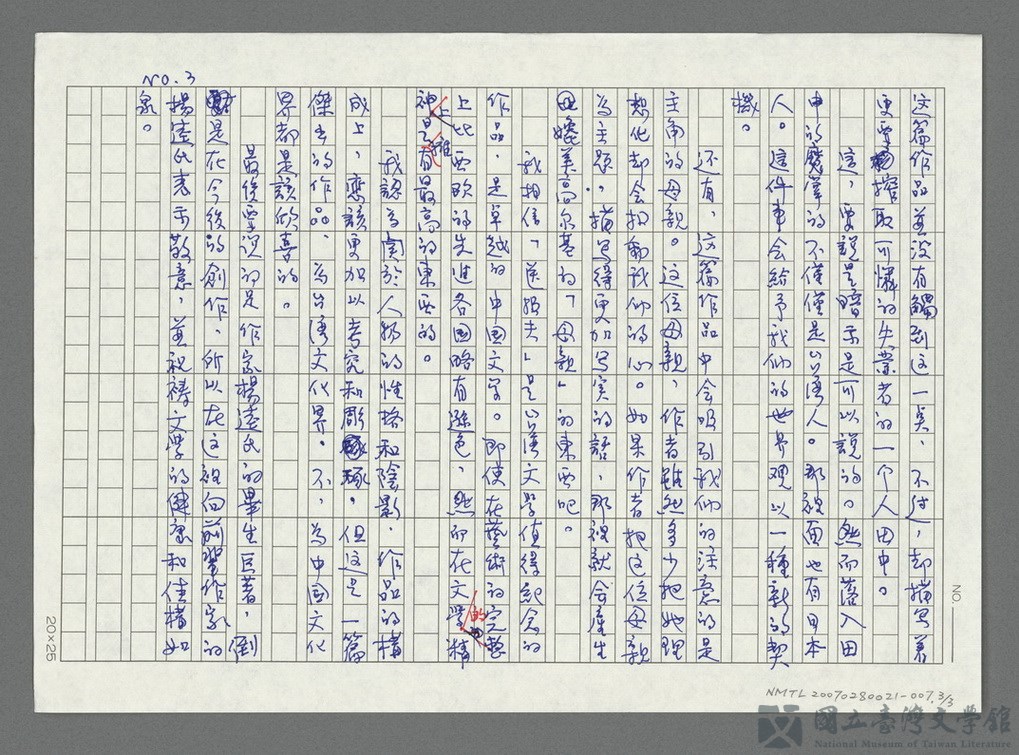 NO.3
这篇作品並没有觸到这一点、不过，却描写着
更要榨取可憐的失業者的一个人田中。
這，要說是暗示是可以說的。然而落入田
中的殘掌的不僅僅是台湾人。那裡面也有日本
人。這件事会給予我们的世界观以一種新的契
機。
还有，这篇作品中会吸引我们的注意的是
主角的母親。这位母親，作者雖然多少把她理
想化却会扣動我们的心。如果作者把这位母親
為主題，描写得更加写实的話，那裡就会產生
媲美高尔基的「母親」的東西吧。
我相信「送报夫」是台湾文学值得紀念的
作品，是卓越的中国文学。即使在藝術的完整
上比西欧的先進各国略有遜色，然而在文学的精
神上是擁有最高的東西的。
我認為関於人物的性格和陰影，作品的構
成上，應該更加以考究和雕琢。但这是一篇
傑出的作品，為台湾文化界。不，為中国文化
界都是該欣喜的。
最後要说的是作家楊逵氏的畢生巨著，倒
是在今後的創作、所以在这裡向前輩作家的
楊逵氏表示敬意，並祝禱文学的健康和佳構如
泉。
NO.
20×25
NMTL 20070280021-007.3/3
國立臺灣文學館
National Museum of Taiwan Literature